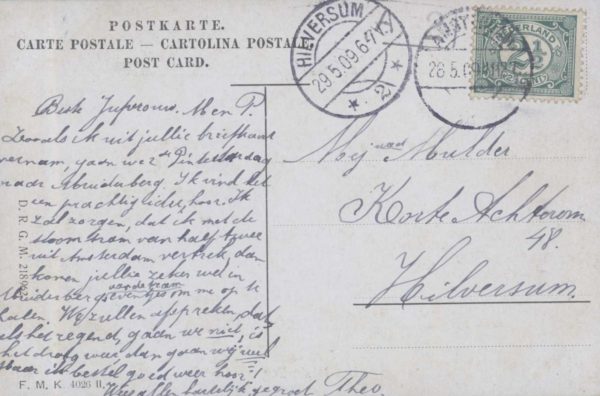 POSTKARTE.
CARTE POSTALE — CARTOLINA POSTALE
POST CARD.
HILVERSUM
29.5.09.6-7V.
2
28.5.09
NEDERLAND
2½
CENT
Beste Juffrouw. M en P.
Zooals ik uit jullie briefkaart
vernam, gaan we 2de Pinksterdag
naar Muiderberg. Ik vind het
een prachtig idee, hoor. Ik
zal zorgen, dat ik met de
stoomtram van half twee
uit Amsterdam vertrek, dan
komen jullie zeker wel in
Muiderberg eventjes om me op te
van de tram
halen. Wij zullen afspreken, dat
als het regend, gaan we niet, is
het droog weer, dan gaan wij wel
Maar in bestel goed weer hoor!
allen hartelijk gegroet Theo.
Mej Mulder
Korte Achterom
48.
Hilversum.
D. R. G. M.
F. M. K. 4026 II.